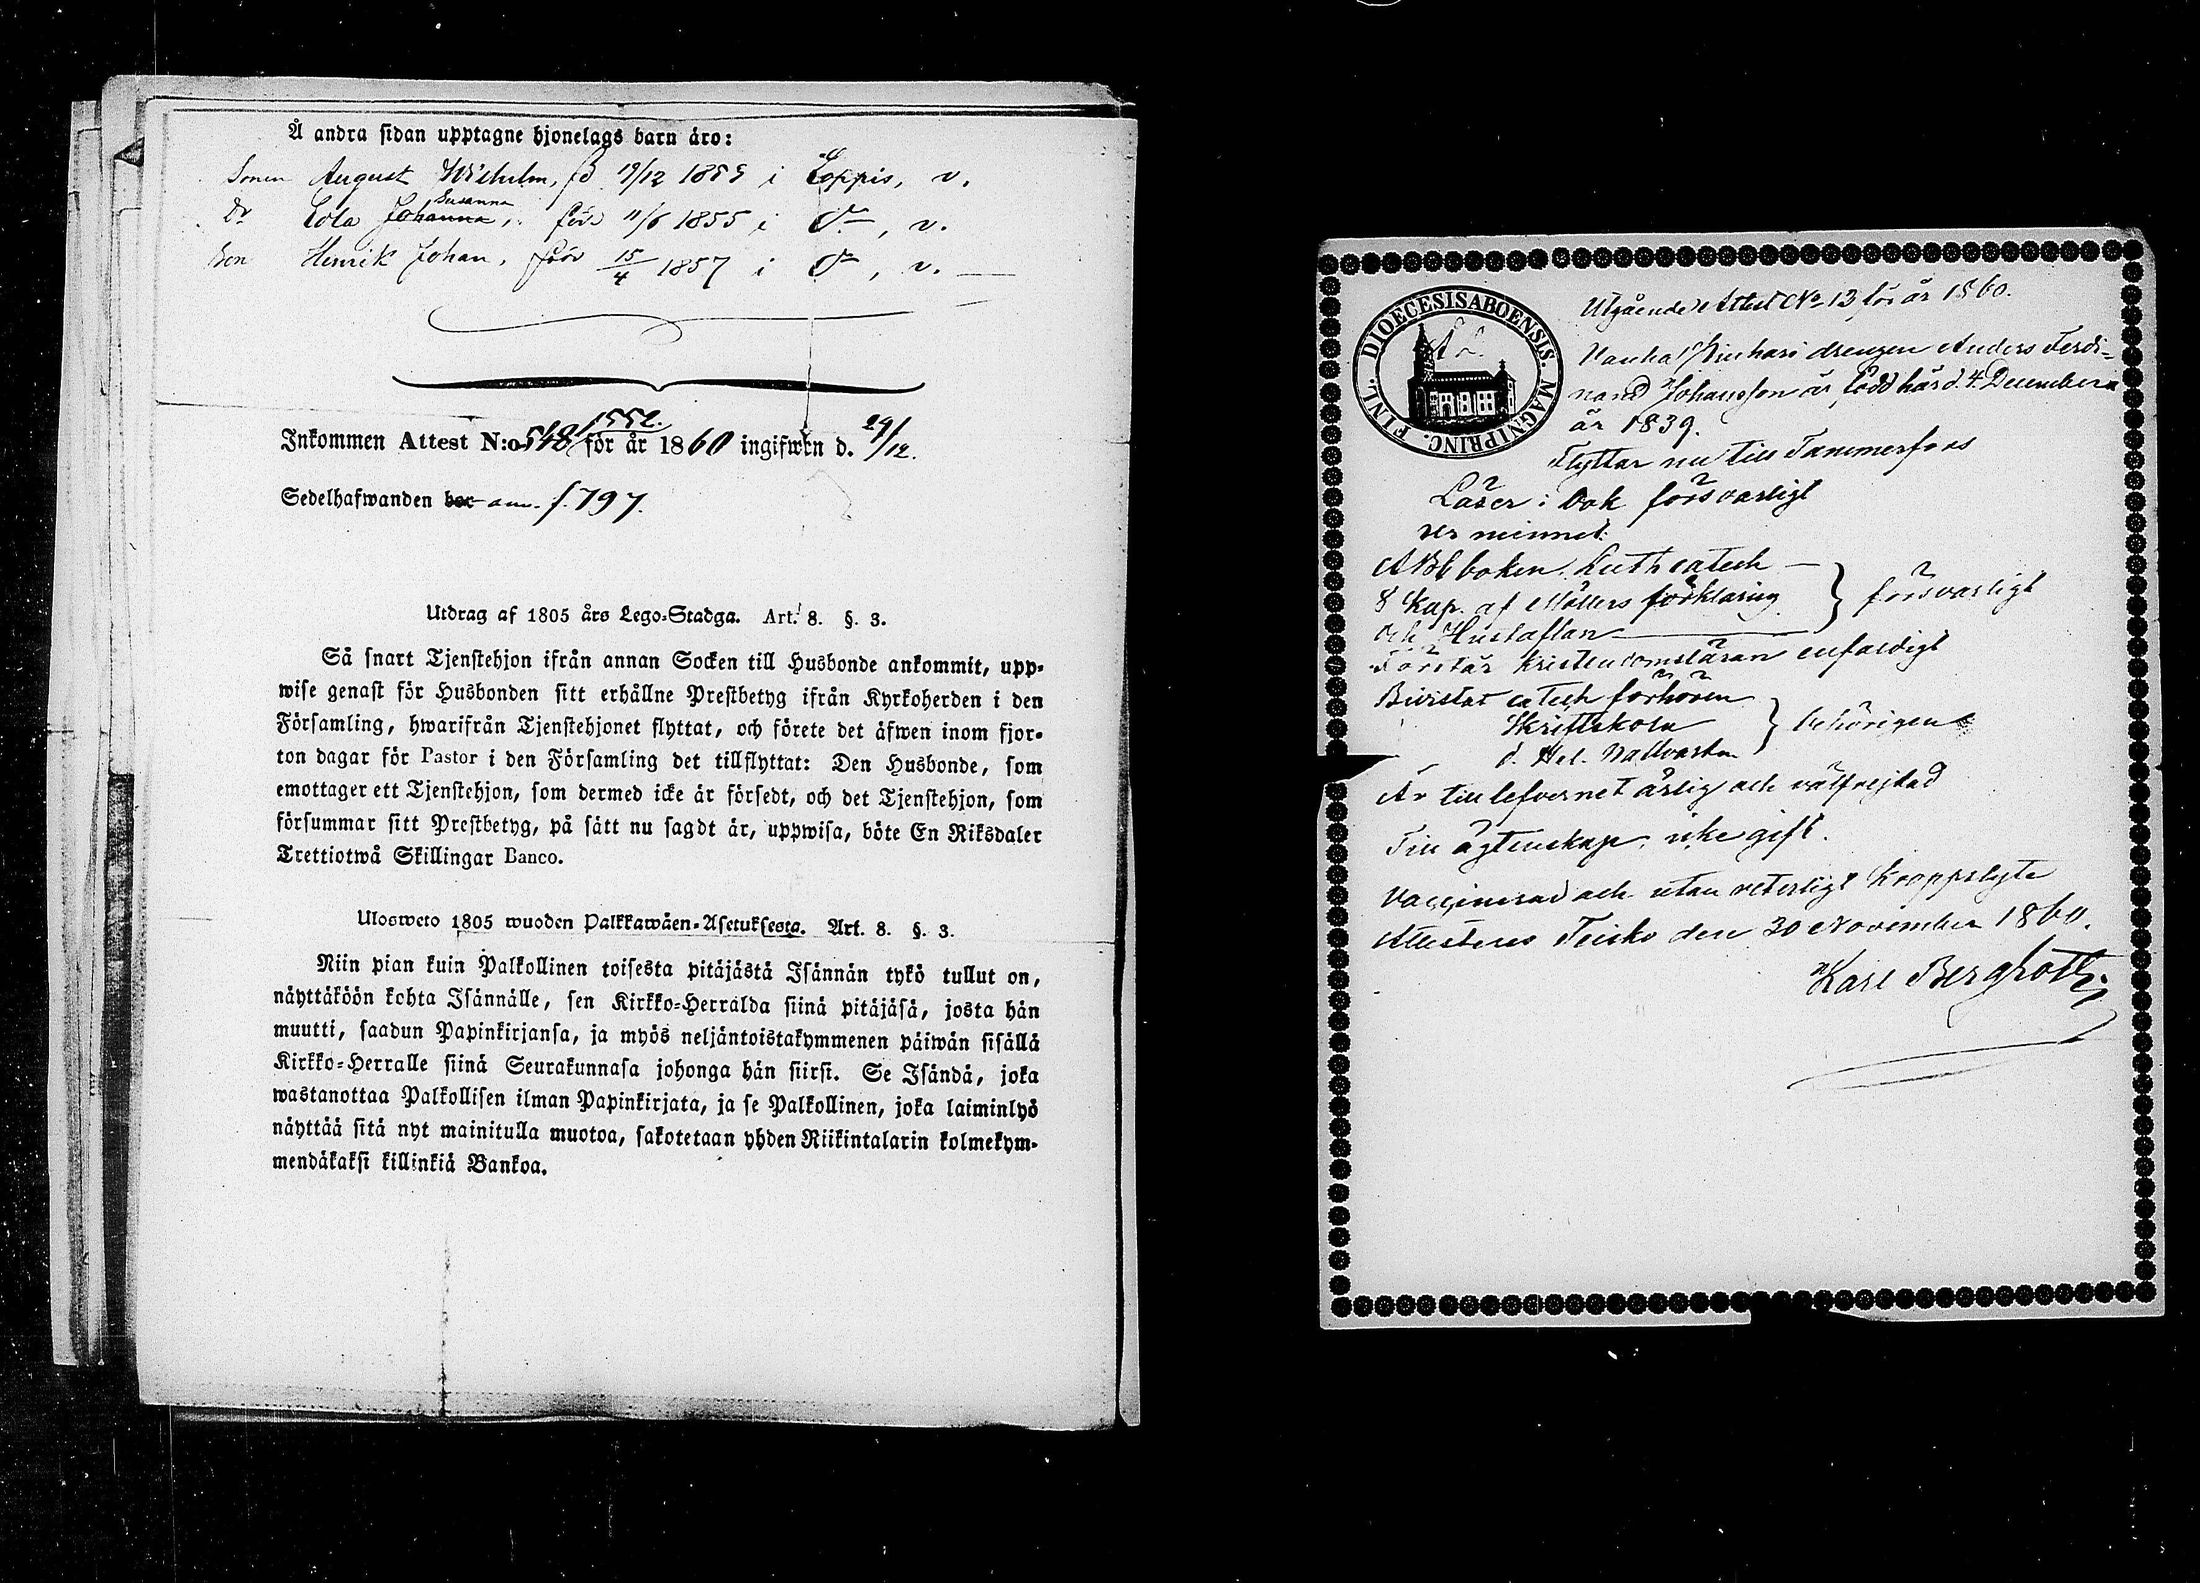 Å andra sidan upptagne hjonelags barn äro:
Sonen August Wilhelm, f. 19/12 1853 i Loppis, v.
Dr Lovisa Johanna Susanna, född 11/6 1855 i do, v.
Son Henrik Johan, född 15/4 1857 i do, v.
Inkommen Attest N:o 548 1552. för år 1860 ingifwen d. 29/12.
Sedelhafwanden bor ann. f. 797.
Utdrag af 1805 års Lego-Stadga. Art. 8. §. 3.
Så snart Tjenstehjon ifrån annan Socken till Husbonde ankommit, upp-
wise genast för Husbonden sitt erhållne Prestbetyg ifrån Kyrkoherden i den
Församling, hwarifrån Tjenstehjonet flyttat, och förete det äfwen inom fjor-
ton dagar för Pastor i den Församling det tillflyttat: Den Husbonde, som
emottager ett Tjenstehjon, som dermed icke är försedt, och det Tjenstehjon, som
försummar sitt Prestbetyg, på sätt nu sagdt är, uppwisa, böte En Riksdaler
Trettiotwå Skillingar Banco.
Ulosweto 1805 wuoden Palkkawäen-Asetuksesta. Art. 8. §. 3.
Niin pian kuin Palkollinen toisesta pitäjästä Isännän tykö tullut on,
näyttäköön kohta Isännälle, sen Kirkko-Herralda siinä pitäjäsä, josta hän
muutti, saadun Papinkirjansa, ja myös neljäntoistakymmenen päiwän sisällä
Kirkko-Herralle siinä Seurakunnasa johonga hän siirsi. Se Isändä, joka
wastanottaa Palkollisen ilman Papinkirjata, ja se Palkollinen, joka laiminlyö
näyttää sitä nyt mainitulla muotoa, sakotetaan yhden Riikintalarin kolmekym-
mendäkaksi killinkiä Bankoa.
DIOECESIS ABOENSIS. MAGNI PRINC. FINL.
Utgående Attest No 13 för år 1860.
drengen Anders Ferdi-
nand Johansson är född här d. 4 December
år 1839.
Flyttar nu till Tammerfors
Läser i bok försvarligt
ur minnet:
ABC boken, Luth catech
8 Kap. af Möllers förklaring } försvarligt
och Hustaflan
Förstår kristendomsläran enfaldigt
Bivistat catech förhören
Skriftskola } behörigen
d. Hel. Nattvarden
Är till lefvernet ärlig och välfrejdad
Till ägtenskap icke gift.
Vaccinerad och utan veterligt kroppslyte
Attesteras Teisko den 30 November 1860.
Karl Bergroth